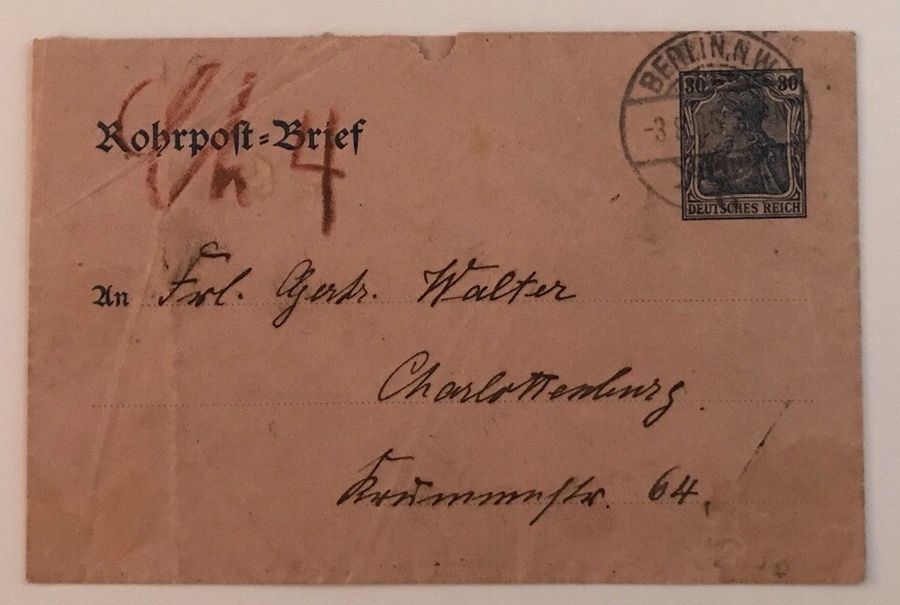 BERLIN. N.W.
30 30
-3.8.
DEUTSCHES REICH
Rohrpost-Brief
Ch 4
An Frl. Gertr. Walter
Charlottenburg.
Krummestr. 64.